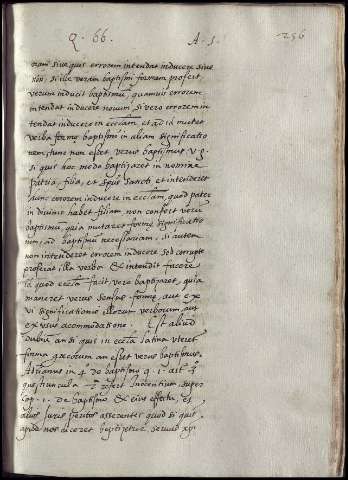 Q. 66. A. 5. 256
etiam si ve quis errorem intendat inducere sive
non, si ille veram baptismi formam profert,
verum inducit baptismum, quamvis errorem
intendat inducere novum, si vero errorem in
tendat inducere in ecclãm et ad id mutet
verba formę baptismi in aliam significatio
nem, tunc non esset verus baptismus v. g.
si quis hoc modo baptizaret in nomine
patria, filia, et Spũs Sancti et intenderet
hunc errorem inducere in ecclãm, quod pater
in divinis habet filiam non confert verũ
baptismũ, quia mutaret formę significatio
nem, ad baptismũ necessariam, si autem
non intenderet errorem inducere sed corrupte
proferat illa verba & intendit facere
id quod ecclã facit, vere baptizaret, quia
maneret verus sensus formę, aut ex
vi significationis illorum verborum aut
ex usus acommodatione. Est aliud
dubiũ an si quis in ecclã latina uteret
forma gręcorum an esset verus baptismus.
Adrianus in 4 de baptismo q. 1. ait
quęstiuncula refert Inocentium super
cap. 1. de baptismo & eius effectu, et
alios juris peritos asserentes quod si quis
apud nos diceret baptizetur servus xpi